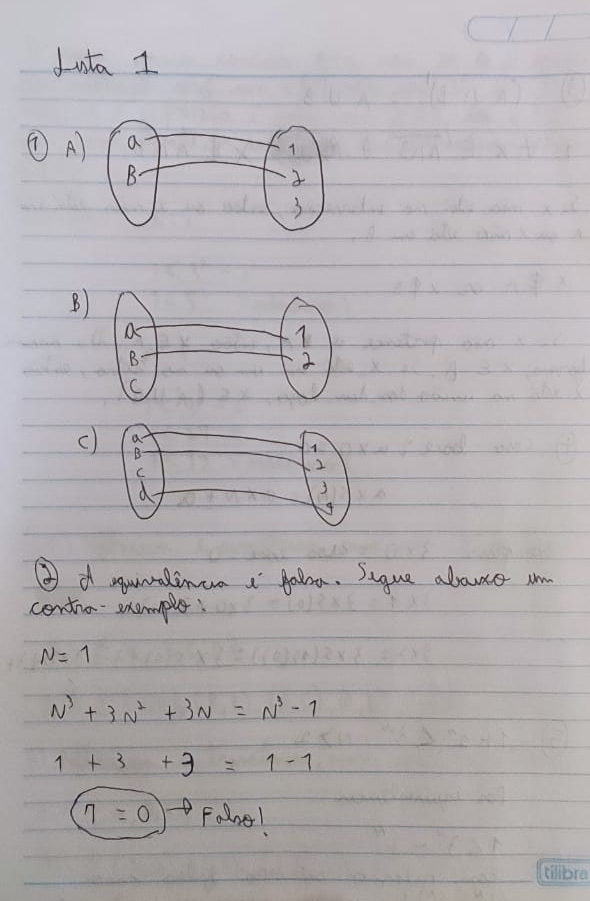 Lista 1
① A) a B 1 2 3
B) a B C 1 2
C) a B C d 1 2 3 4
② A equivalência é falsa. Segue abaixo um
contra-exemplo:
N = 1
N³ + 3N² + 3N = N³ - 1
1 + 3 + 3 = 1 - 1
7 = 0 → Falso!
tilibra